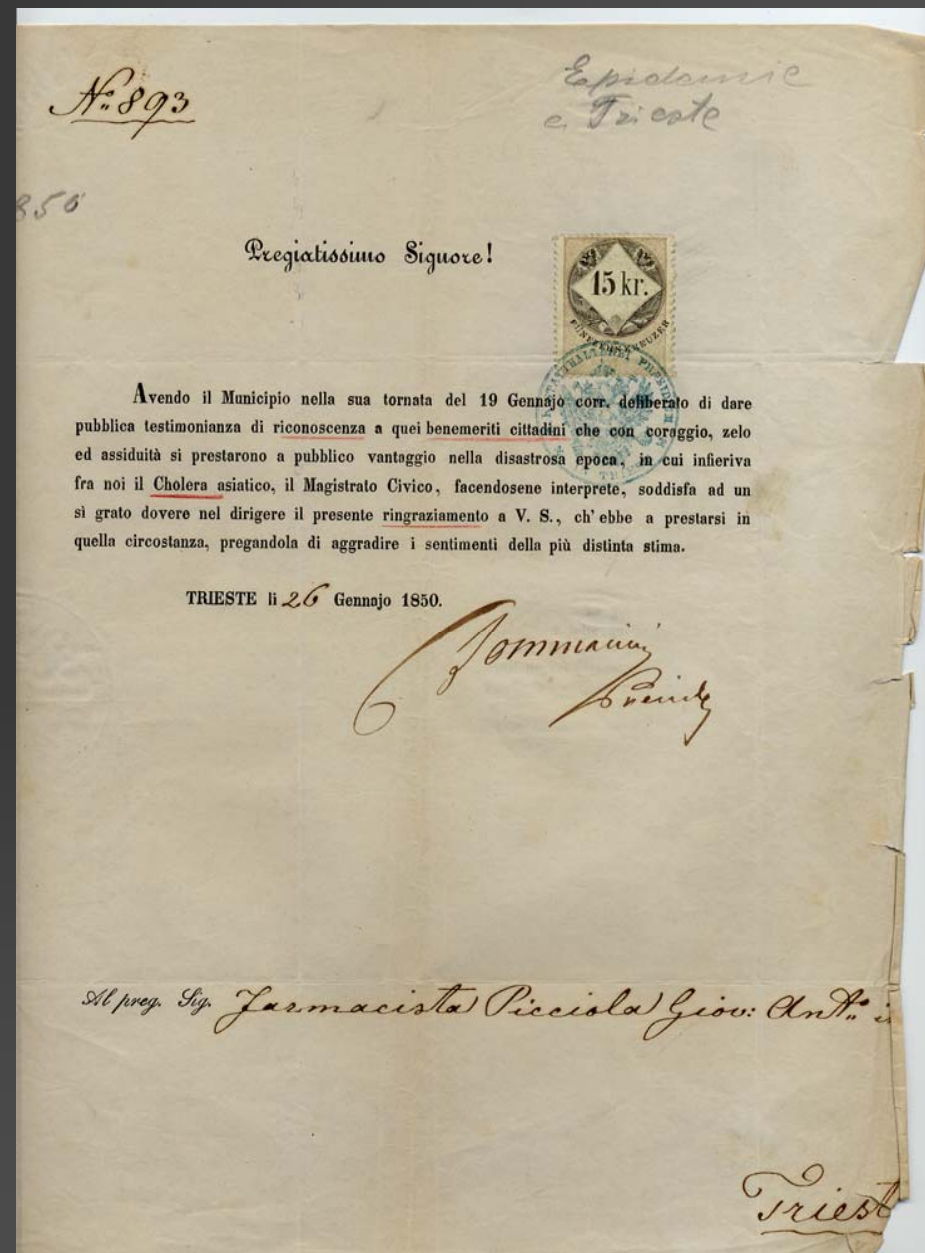 N.º 893
Epidemie
a Trieste
850
Pregiatissimo Signore!
15 kr.
FÜNFZEHN KREUZER
STATTHALTEREI PRÆSIDIUM
Avendo il Municipio nella sua tornata del 19 Gennajo corr. deliberato di dare
pubblica testimonianza di riconoscenza a quei benemeriti cittadini che con coraggio, zelo
ed assiduità si prestarono a pubblico vantaggio nella disastrosa epoca, in cui infieriva
fra noi il Cholera asiatico, il Magistrato Civico, facendosene interprete, soddisfa ad un
sì grato dovere nel dirigere il presente ringraziamento a V. S., ch' ebbe a prestarsi in
quella circostanza, pregandola di aggradire i sentimenti della più distinta stima.
TRIESTE li 26 Gennajo 1850.
Tommasini
Al preg. Sig. Farmacista Picciola Giov: Ant.º i
Triest